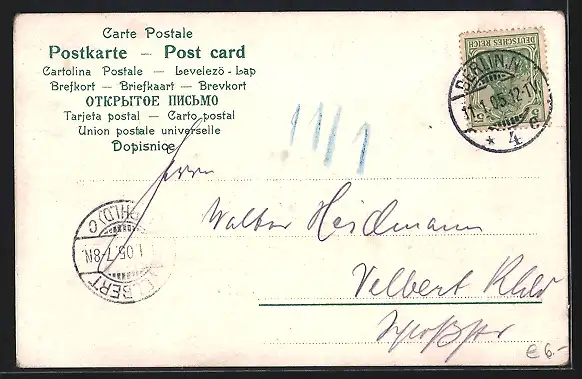 Carte Postale
Postkarte — Post card
Cartolina Postale — Levelező-Lap
Brefkort — Briefkaart — Brevkort
ОТКРЫТОЕ ПИСЬМО
Tarjeta postal — Carto postal
Union postale universelle
Dopisnice
DEUTSCHES REICH
5 5
BERLIN, N.
11.1.05.12-1N.
* 4 e
11/1
Herrn
Walter Heidmann
Velbert Rhld
1.05.7-8N.
€ 6.-